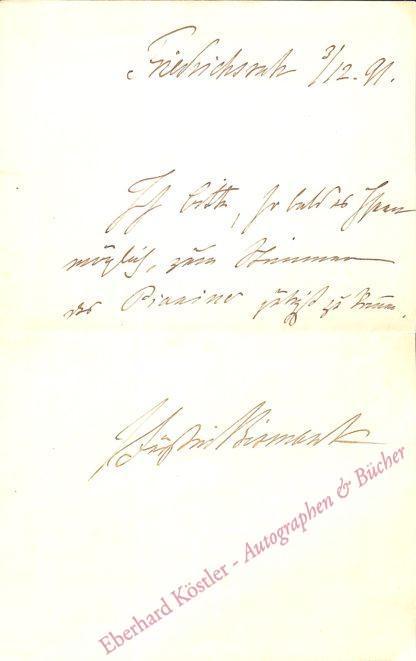 Friedrichsruh 3/12. 91.
Ich bitte, so bald es Ihnen
möglich, zum Stimmen
des Pianino gütigst zu kommen.
Fürstin Bismarck
Eberhard Köstler - Autographen & Bücher